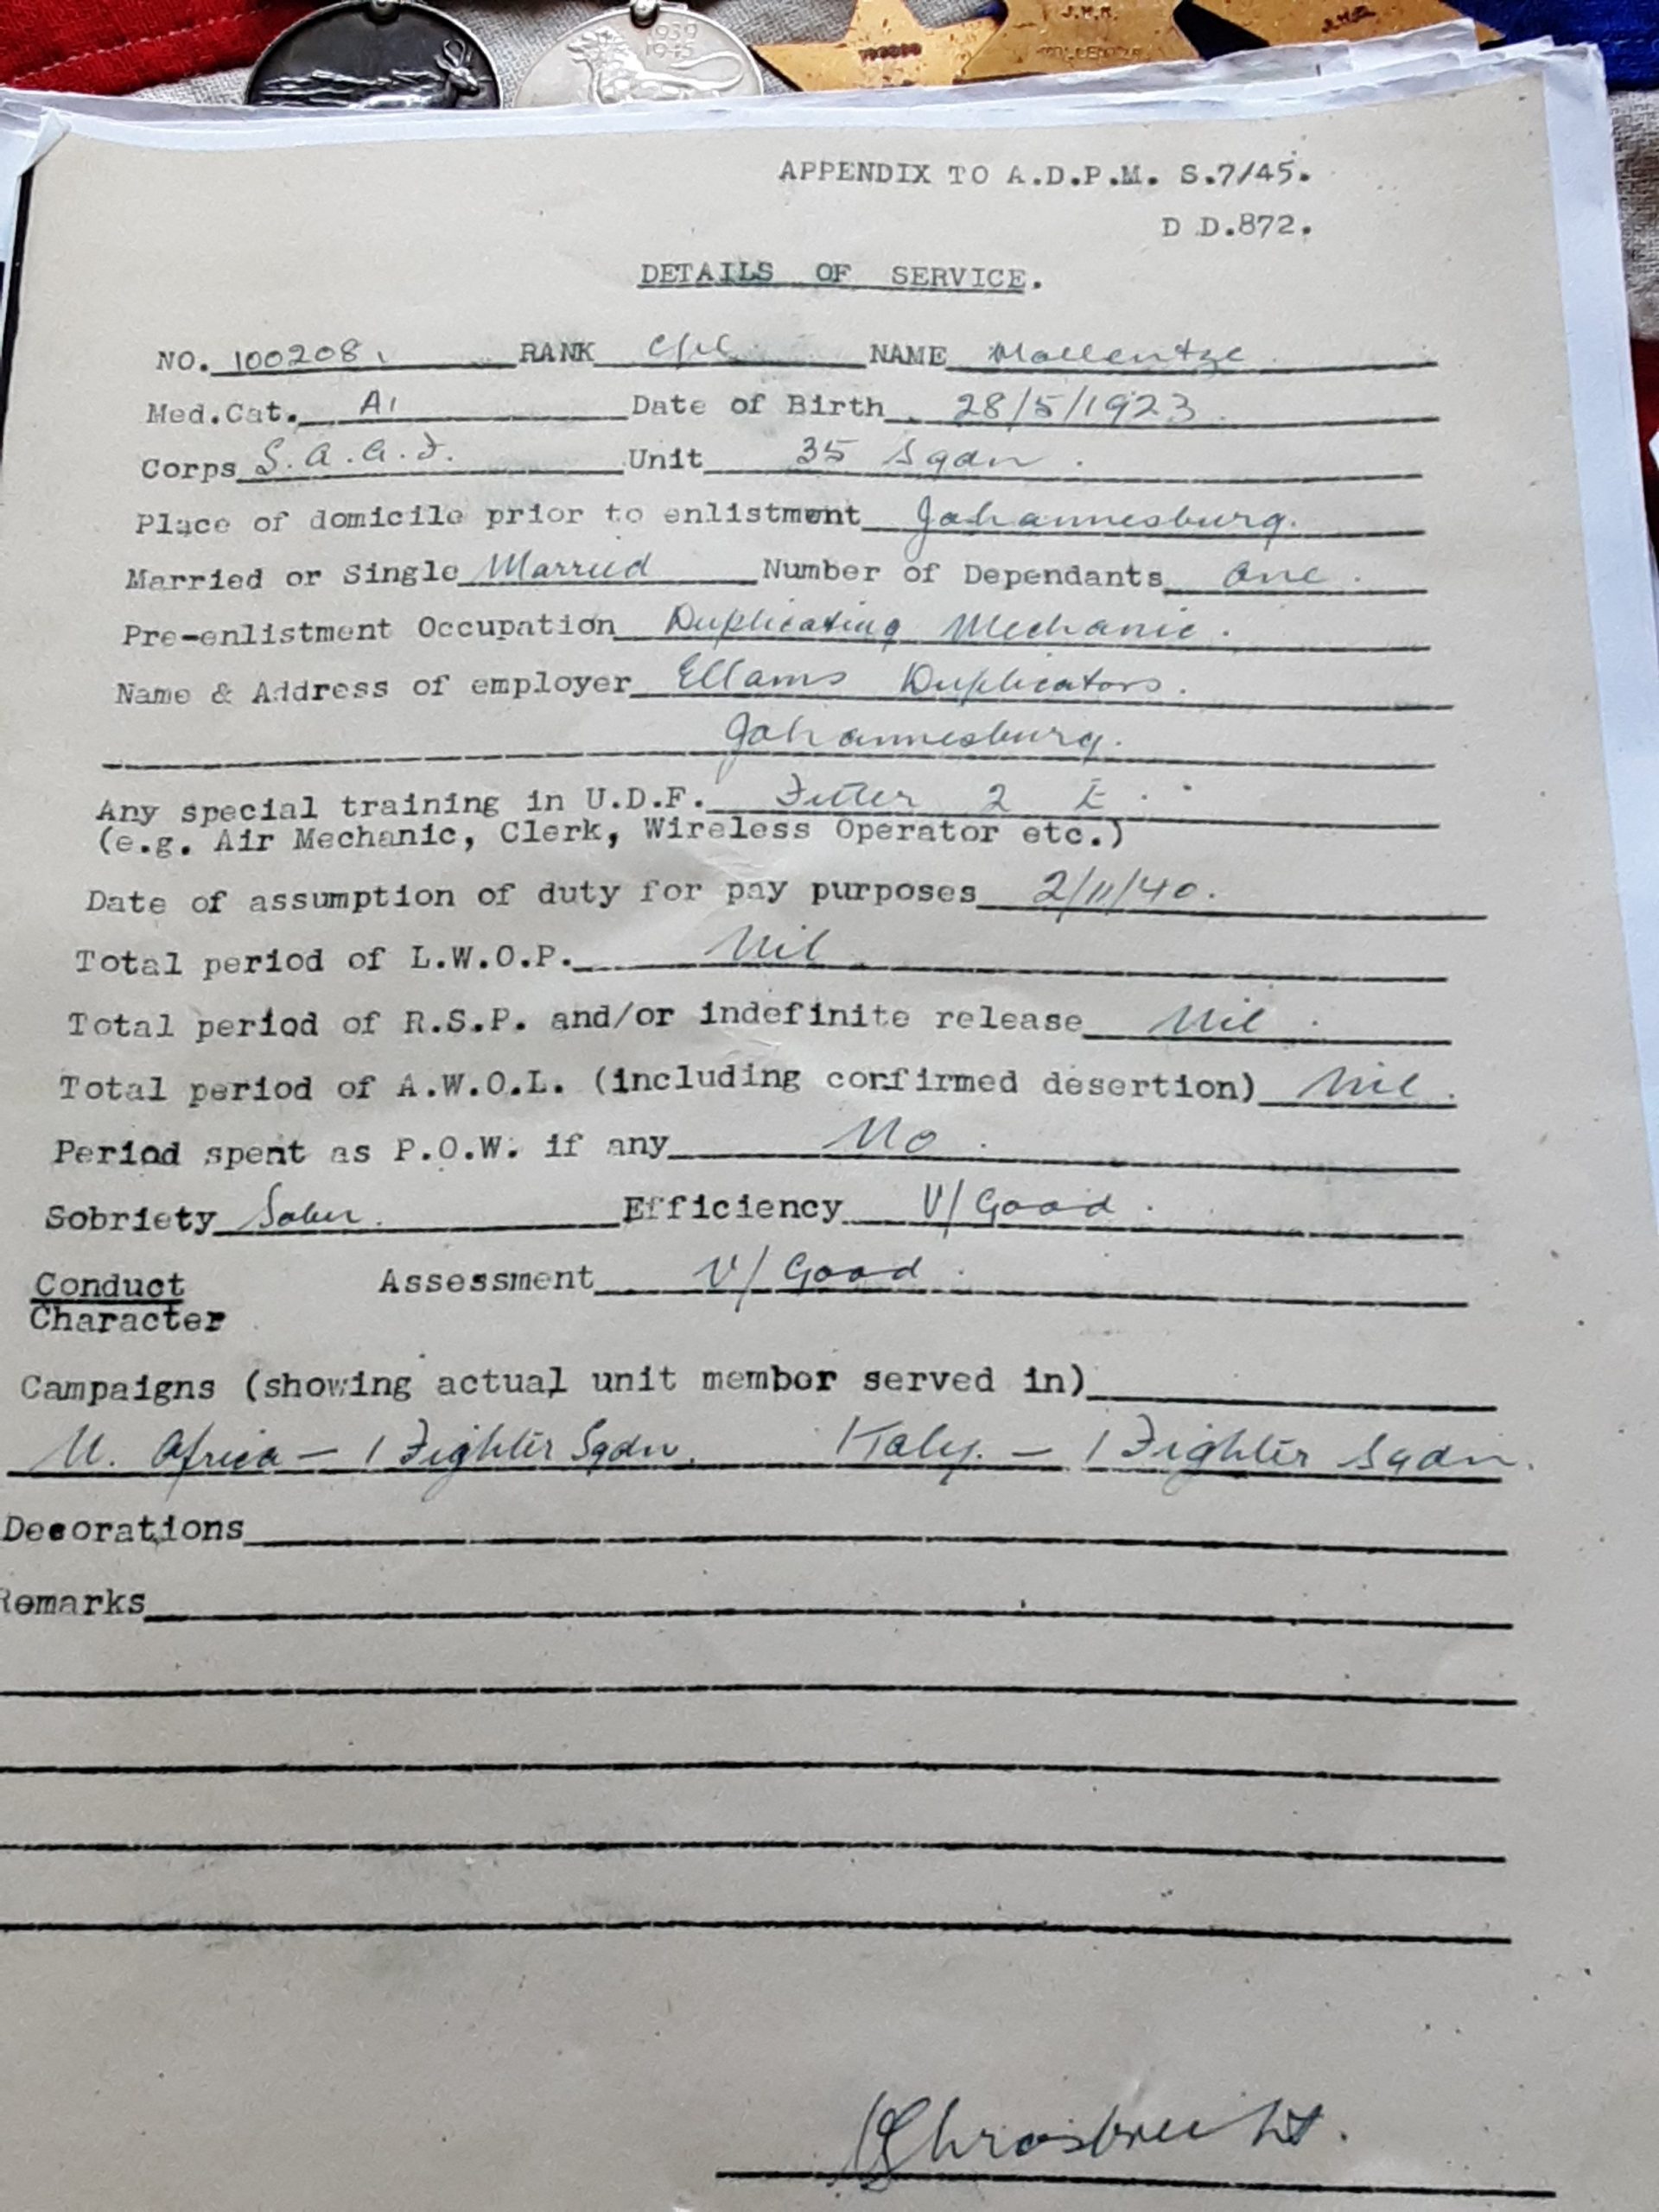 1939
1945
J.H.R.
J.H.R.
APPENDIX TO A.D.P.M. S.7/45.
D D.872.
DETAILS OF SERVICE.
NO. 100208. RANK Cpl. NAME Mollentze
Med.Cat. A1 Date of Birth 28/5/1923
Corps S.A.A.F. Unit 35 Sqdn.
Place of domicile prior to enlistment Johannesburg.
Married or Single Married Number of Dependants One.
Pre-enlistment Occupation Duplicating Mechanic.
Name & Address of employer Ellams Duplicators.
Johannesburg.
Any special training in U.D.F. Fitter 2 E.
(e.g. Air Mechanic, Clerk, Wireless Operator etc.)
Date of assumption of duty for pay purposes 2/11/40.
Total period of L.W.O.P. Nil
Total period of R.S.P. and/or indefinite release Nil.
Total period of A.W.O.L. (including confirmed desertion) Nil.
Period spent as P.O.W. if any No.
Sobriety Sober. Efficiency V/Good.
Conduct Assessment V/Good.
Character
Campaigns (showing actual unit member served in)
N. Africa - 1 Fighter Sqdn. Italy. - 1 Fighter Sqdn.
Decorations
Remarks